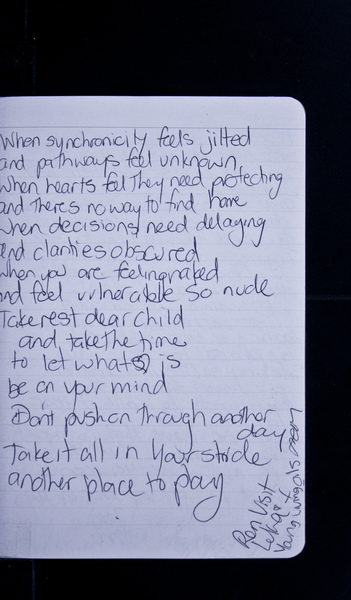 When synchronicity feels jilted
and pathways feel unknown,
When hearts feel They need protecting
and Theres no way to find home
when decisions need delaying
and clarities obscured
when you are feeling naked
and feel vulnerable so nude
Take rest dear child
and take the time
to let whats is
be on your mind
Don't push on through another
day
Take it all in your stride
another place to play
Visit